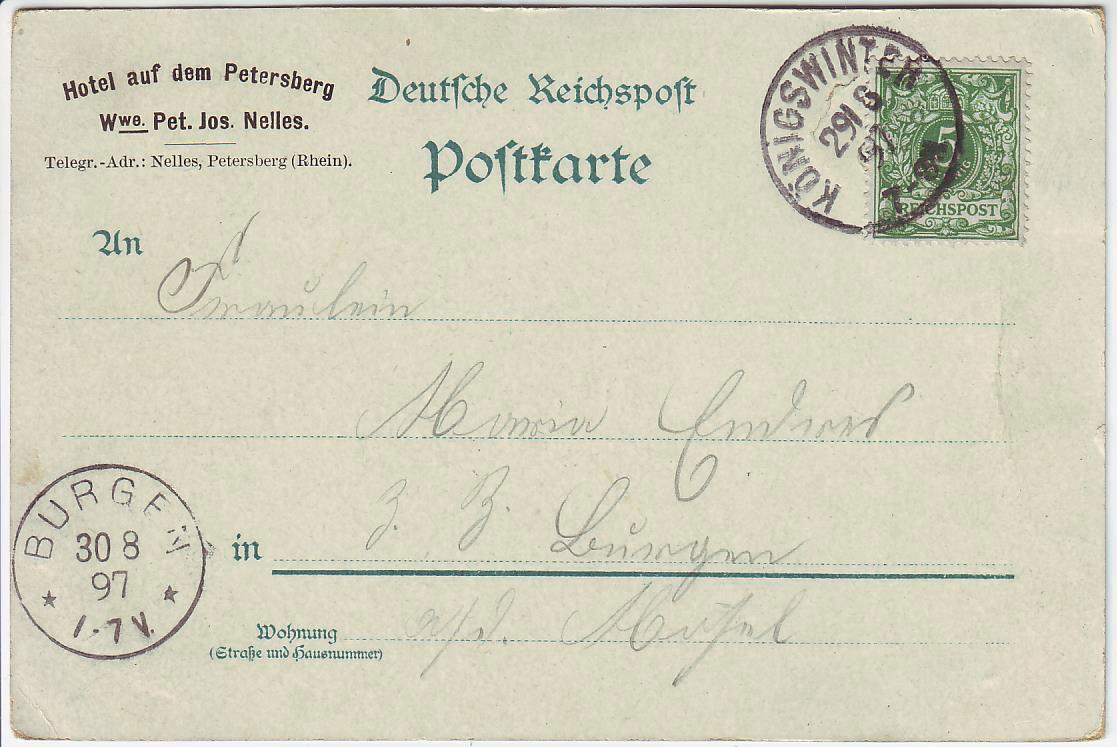 Hotel auf dem Petersberg
Wwe. Pet. Jos. Nelles.
Telegr.-Adr.: Nelles, Petersberg (Rhein).
Deutsche Reichspost
Postkarte
KÖNIGSWINTER
29 8
97
7-8N
5
REICHSPOST
An
Fräulein
Maria Endres
z. Z. Burgen
in
a/d. Mosel
Wohnung
(Straße und Hausnummer)
BURGEN
30 8
97
1-7 V.